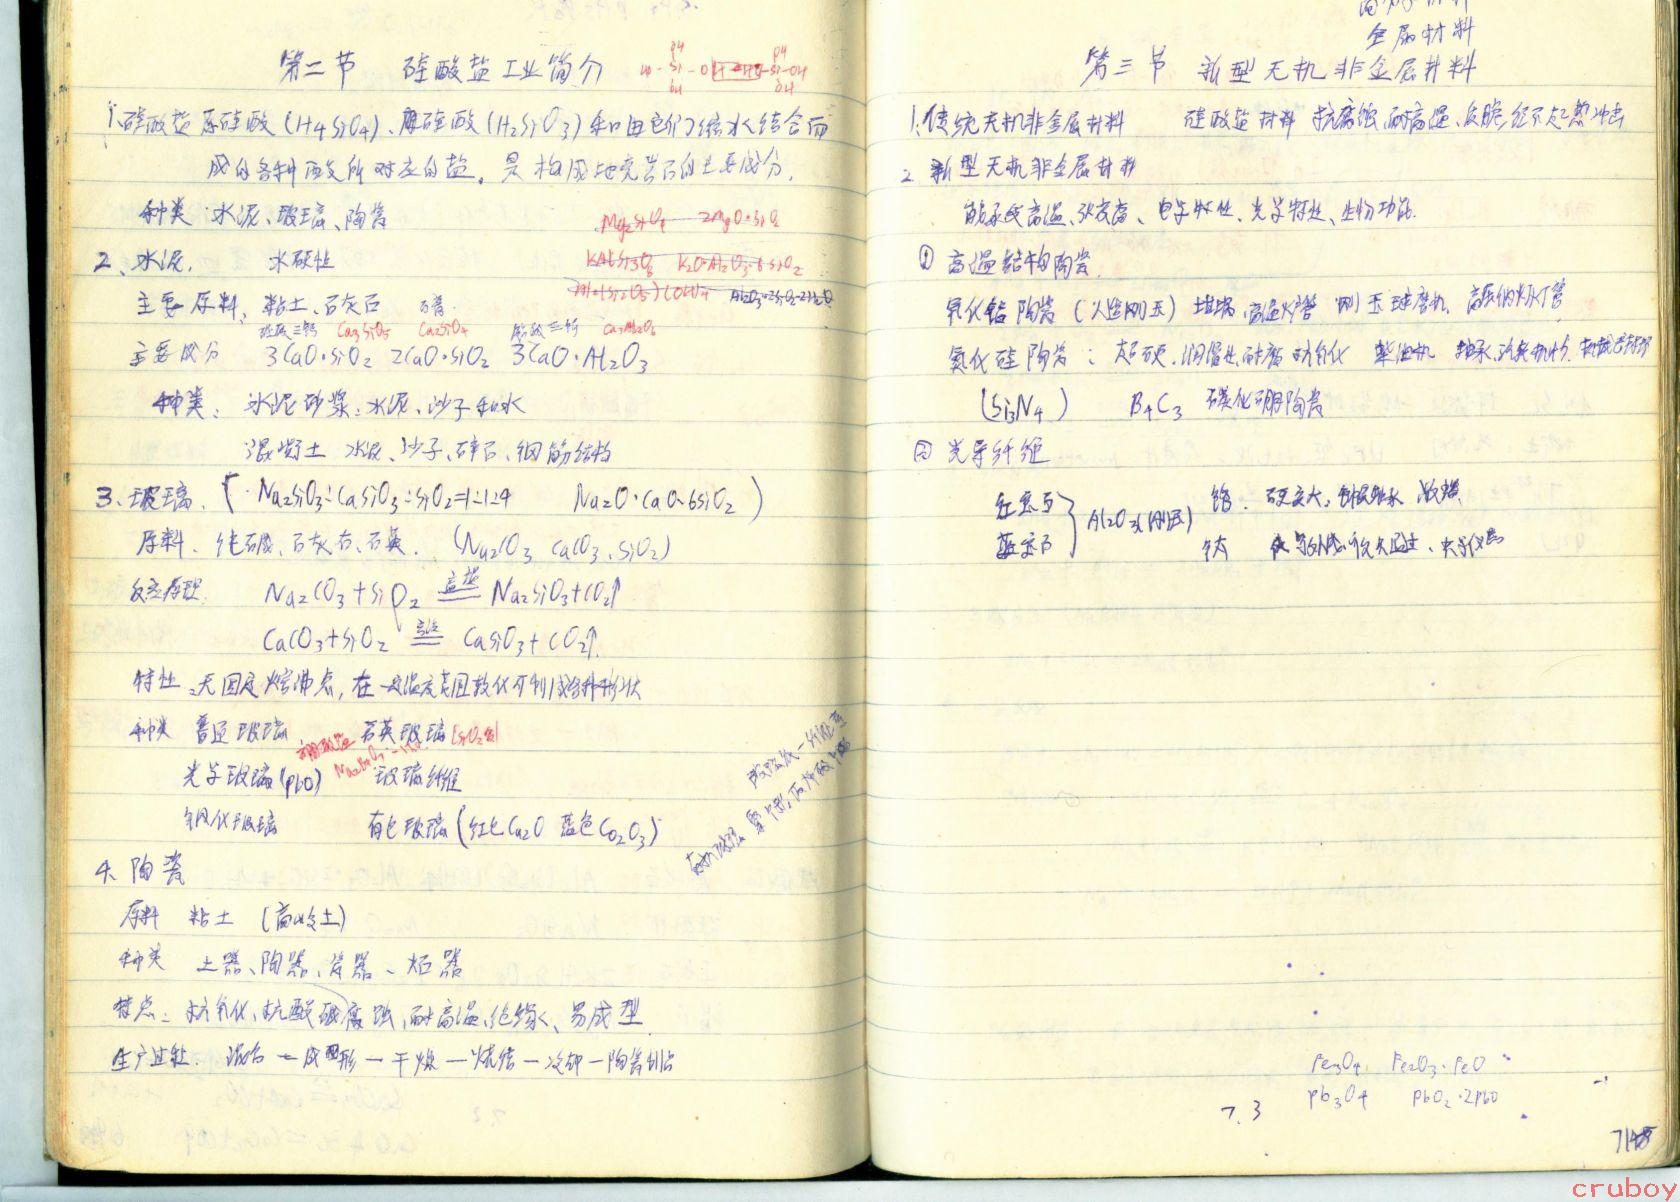 第二节 硅酸盐工业简介
1.硅酸盐 原硅酸(H4SiO4)、偏硅酸(H2SiO3)和由它们缩水结合而
成的各种酸所对应的盐。是构成地壳岩石的主要成分.
种类 水泥、玻璃、陶瓷
Mg2SiO4 2MgO·SiO2
2、水泥. 水硬性
KAlSi3O8 K2O·Al2O3·6SiO2
Al2O3·2SiO2·2H2O
主要原料: 粘土、石灰石
硅酸三钙 Ca3SiO5 Ca2SiO4 铝酸三钙 Ca3Al2O6
主要成分 3CaO·SiO2 2CaO·SiO2 3CaO·Al2O3
种类: 水泥砂浆:水泥、沙子和水
混凝土 水泥、沙子、碎石、钢筋结构
3、玻璃. (Na2SiO3:CaSiO3:SiO2=1:1:4 Na2O·CaO·6SiO2)
原料. 纯碱、石灰石、石英. (Na2CO3 CaCO3、SiO2)
反应原理. Na2CO3+SiO2 高温 Na2SiO3+CO2↑
CaCO3+SiO2 高温 CaSiO3+CO2↑.
特性:无固定熔沸点,在一定温度范围软化可制成各种形状
种类 普通玻璃 石英玻璃
硼酸盐
光学玻璃(PbO) 玻璃纤维
钢化玻璃 有色玻璃(红色Cu2O 蓝色Co2O3)
4、陶瓷
原料 粘土 (高岭土)
种类 土器、陶器、瓷器、炻器
特点:抗氧化、抗酸碱腐蚀、耐高温、绝缘、易成型
生产过程. 混合—成形—干燥—烧结—冷却—陶瓷制品
7.2
金属材料
第三节 新型无机非金属材料
1.传统无机非金属材料 硅酸盐材料 抗腐蚀,耐高温,质脆,经不起热冲击
2. 新型无机非金属材料
能承受高温、强度高、电学特性、光学特性、生物功能.
① 高温结构陶瓷.
氧化铝陶瓷 (人造刚玉) 坩埚、高温炉管 刚玉球磨机、高压钠灯灯管
氮化硅陶瓷:超硬、润滑性、耐磨 抗氧化 柴油机 轴承
(Si3N4) B4C3 碳化硼陶瓷
② 光导纤维
红宝石
蓝宝石
Al2O3(刚玉)
铬. 硬度大, 轴承 激光
钛
Fe3O4 Fe2O3·FeO
Pb3O4 PbO2·2PbO
7.3
cruboy